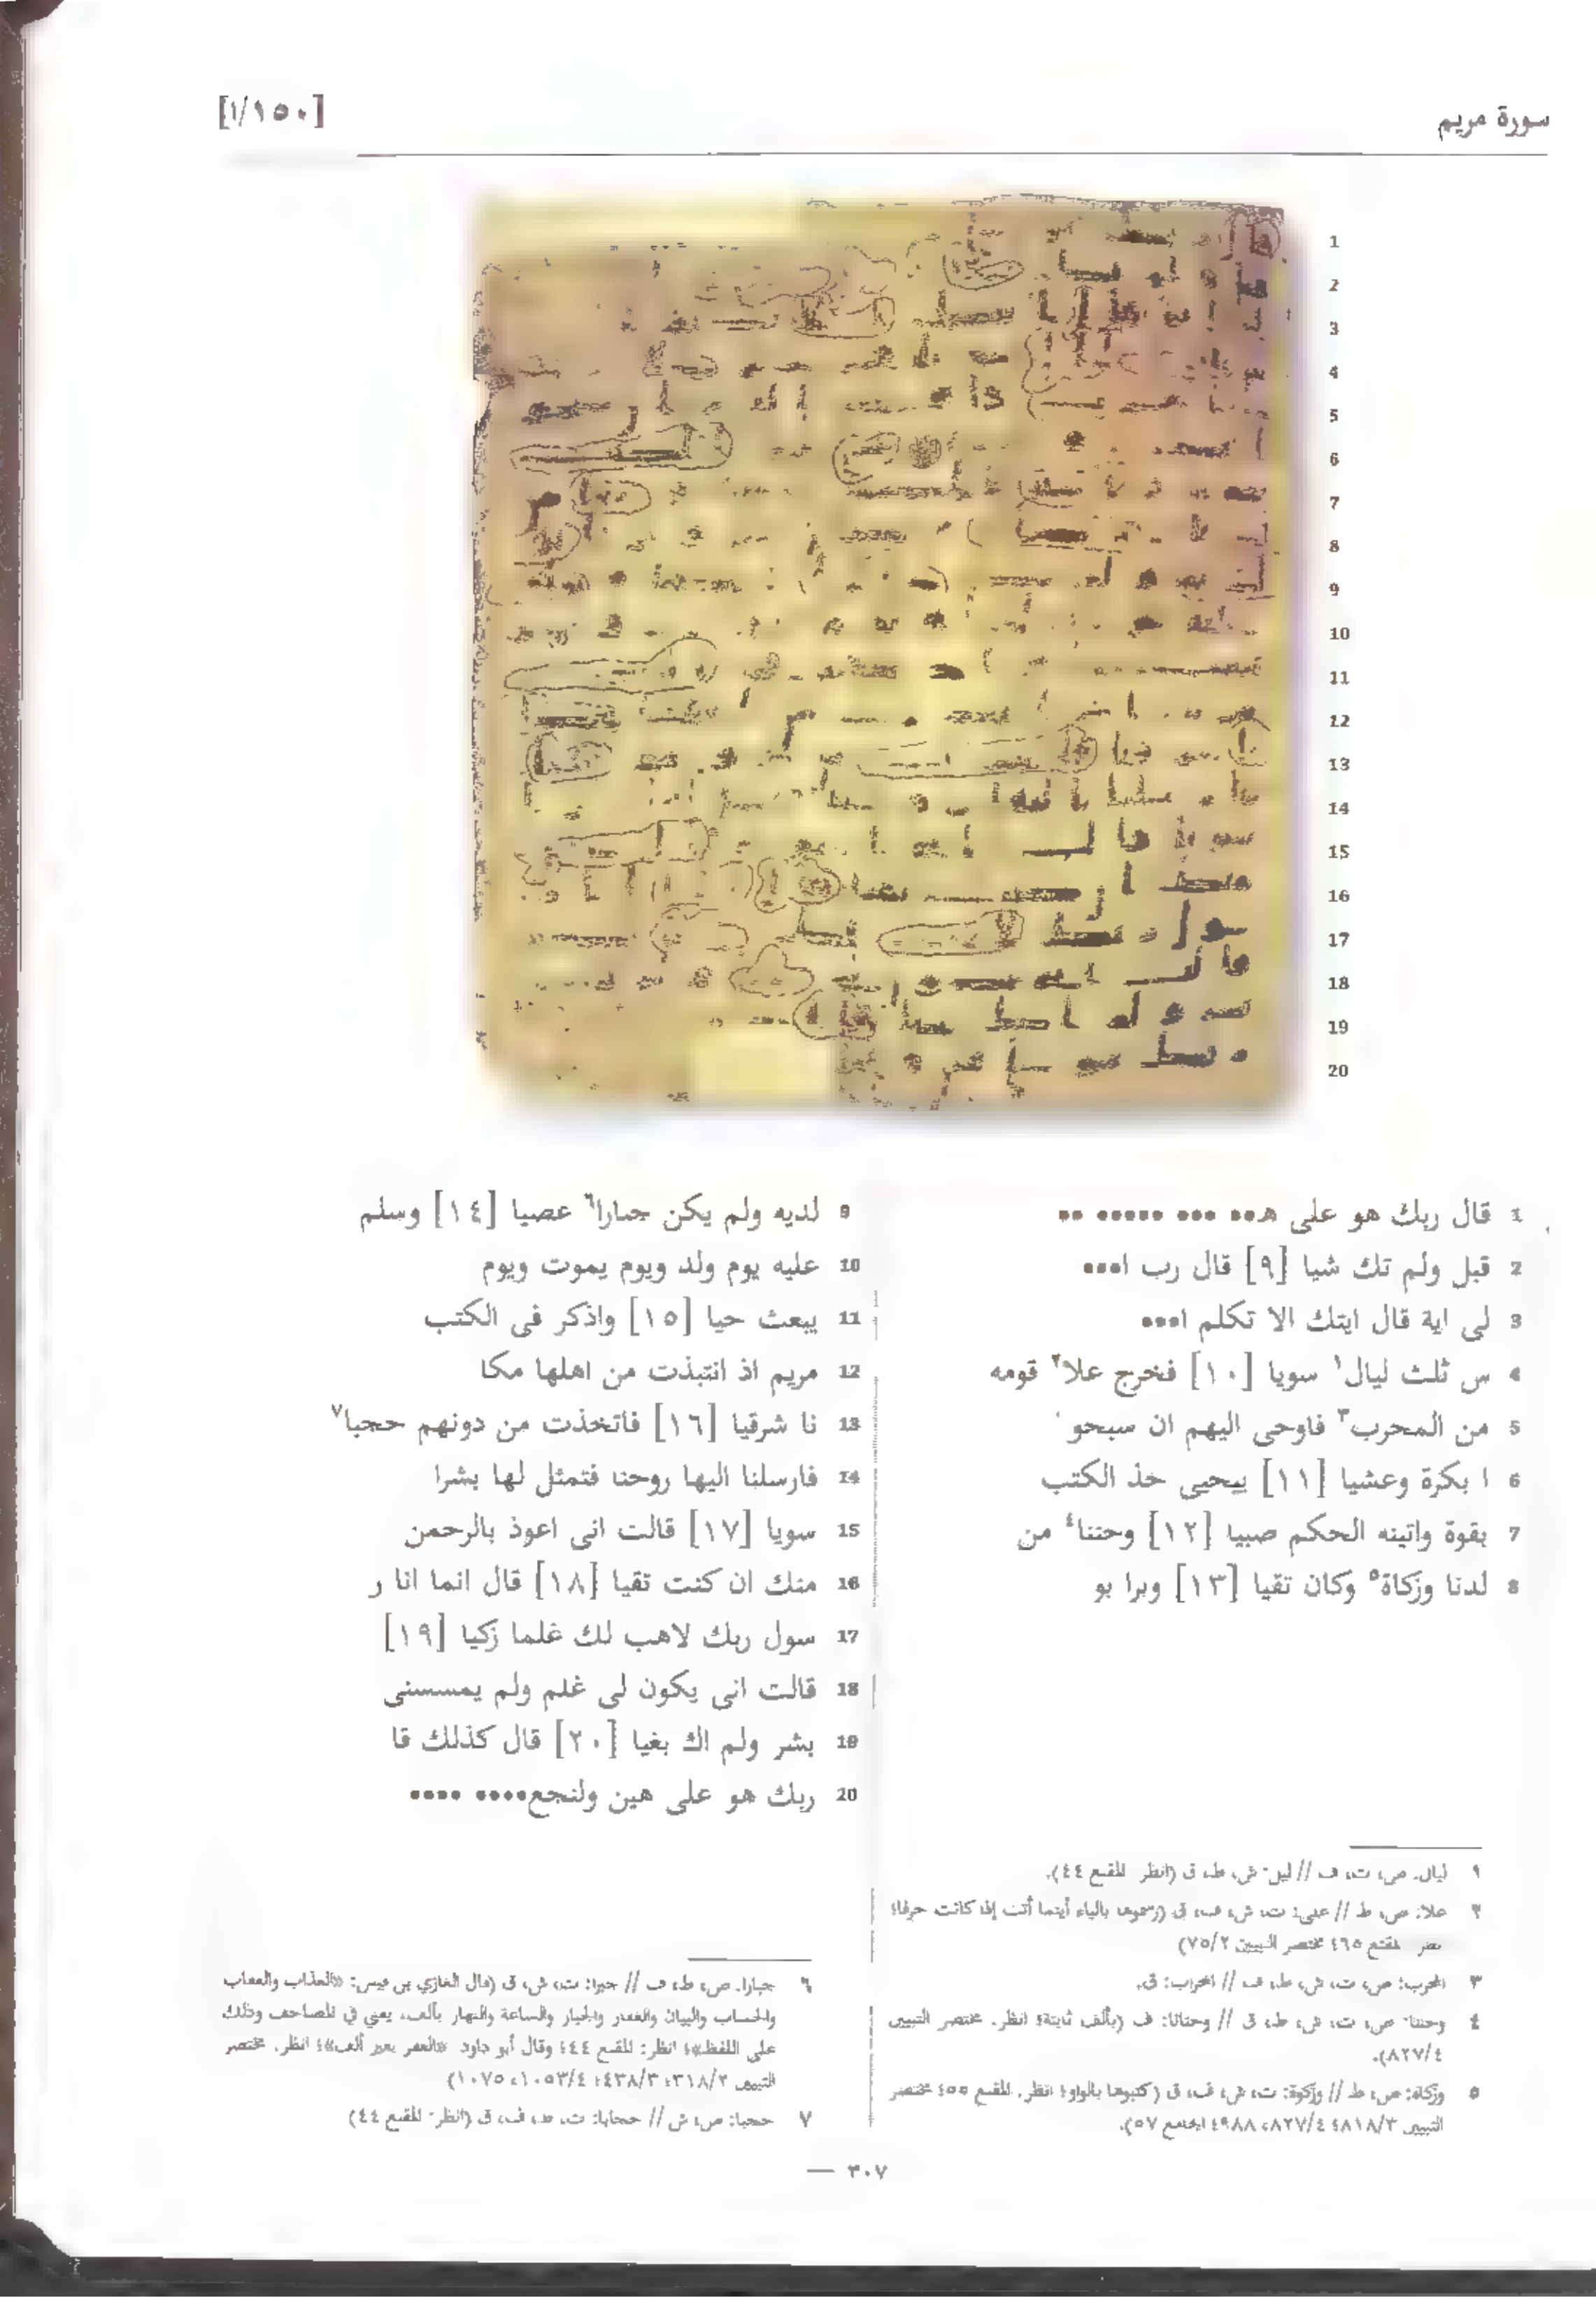 سورة مريم
[١/١٥٠]
1
2
3
4
5
6
7
8
9
10
11
12
13
14
15
16
17
18
19
20
1 قال ربك هو على هـ•• ••• ••••• ••
2 قبل ولم تك شيا [٩] قال رب ا•••
3 لى اية قال ايتك الا تكلم ا•••
4 س ثلث ليال١ سويا [١٠] فخرج علا٢ قومه
5 من المحرب٣ فاوحى اليهم ان سبحو
6 ا بكرة وعشيا [١١] ييحيى خذ الكتب
7 بقوة واتينه الحكم صبيا [١٢] وحننا٤ من
8 لدنا وزكاة٥ وكان تقيا [١٣] وبرا بو
9 لديه ولم يكن جبارا٦ عصيا [١٤] وسلم
10 عليه يوم ولد ويوم يموت ويوم
11 يبعث حيا [١٥] واذكر فى الكتب
12 مريم اذ انتبذت من اهلها مكا
13 نا شرقيا [١٦] فاتخذت من دونهم حجبا٧
14 فارسلنا اليها روحنا فتمثل لها بشرا
15 سويا [١٧] قالت انى اعوذ بالرحمن
16 منك ان كنت تقيا [١٨] قال انما انا ر
17 سول ربك لاهب لك غلما زكيا [١٩]
18 قالت انى يكون لى غلم ولم يمسسنى
19 بشر ولم اك بغيا [٢٠] قال كذلك قا
20 ربك هو على هين ولنجع•••• ••••
١ ليال: ص، ت، ف // ليل: ش، ط، ق (انظر: المقنع ٤٤).
٢ علا: ص، ط // على: ت، ش، ف، ق (رسموها بالياء أينما أتت إذا كانت حرفا؛
انظر: المقنع ٤٦٥ مختصر التبيين ٧٥/٢)
٣ المحرب: ص، ت، ش، ط، ف // المحراب: ق.
٤ وحننا: ص، ت، ش، ط، ق // وحنانا: ف (بألف ثابتة؛ انظر: مختصر التبيين
٨٢٧/٤).
٥ وزكاة: ص، ط // وزكوة: ت، ش، ف، ق (كتبوها بالواو؛ انظر: المقنع ٤٥٥ مختصر
التبيين ٨١٨/٣؛ ٨٢٧/٤، ٩٨٨؛ الجامع ٥٧).
٦ جبارا: ص، ط، ف // جبرا: ت، ش، ق (قال الغازي بن قيس: «العذاب والعقاب
والحساب والبيان والغفار والجبار والساعة والنهار بألف، يعني في المصاحف وذلك
على اللفظ»؛ انظر: المقنع ٤٤؛ وقال أبو داود «الغفر بغير ألف»؛ انظر: مختصر
التبيين ٣١٨/٢؛ ٤٣٨/٣؛ ١٠٥٣/٤، ١٠٧٥)
٧ حجبا: ص، ش // حجابا: ت، ط، ف، ق (انظر: المقنع ٤٤)
— ٣٠٧